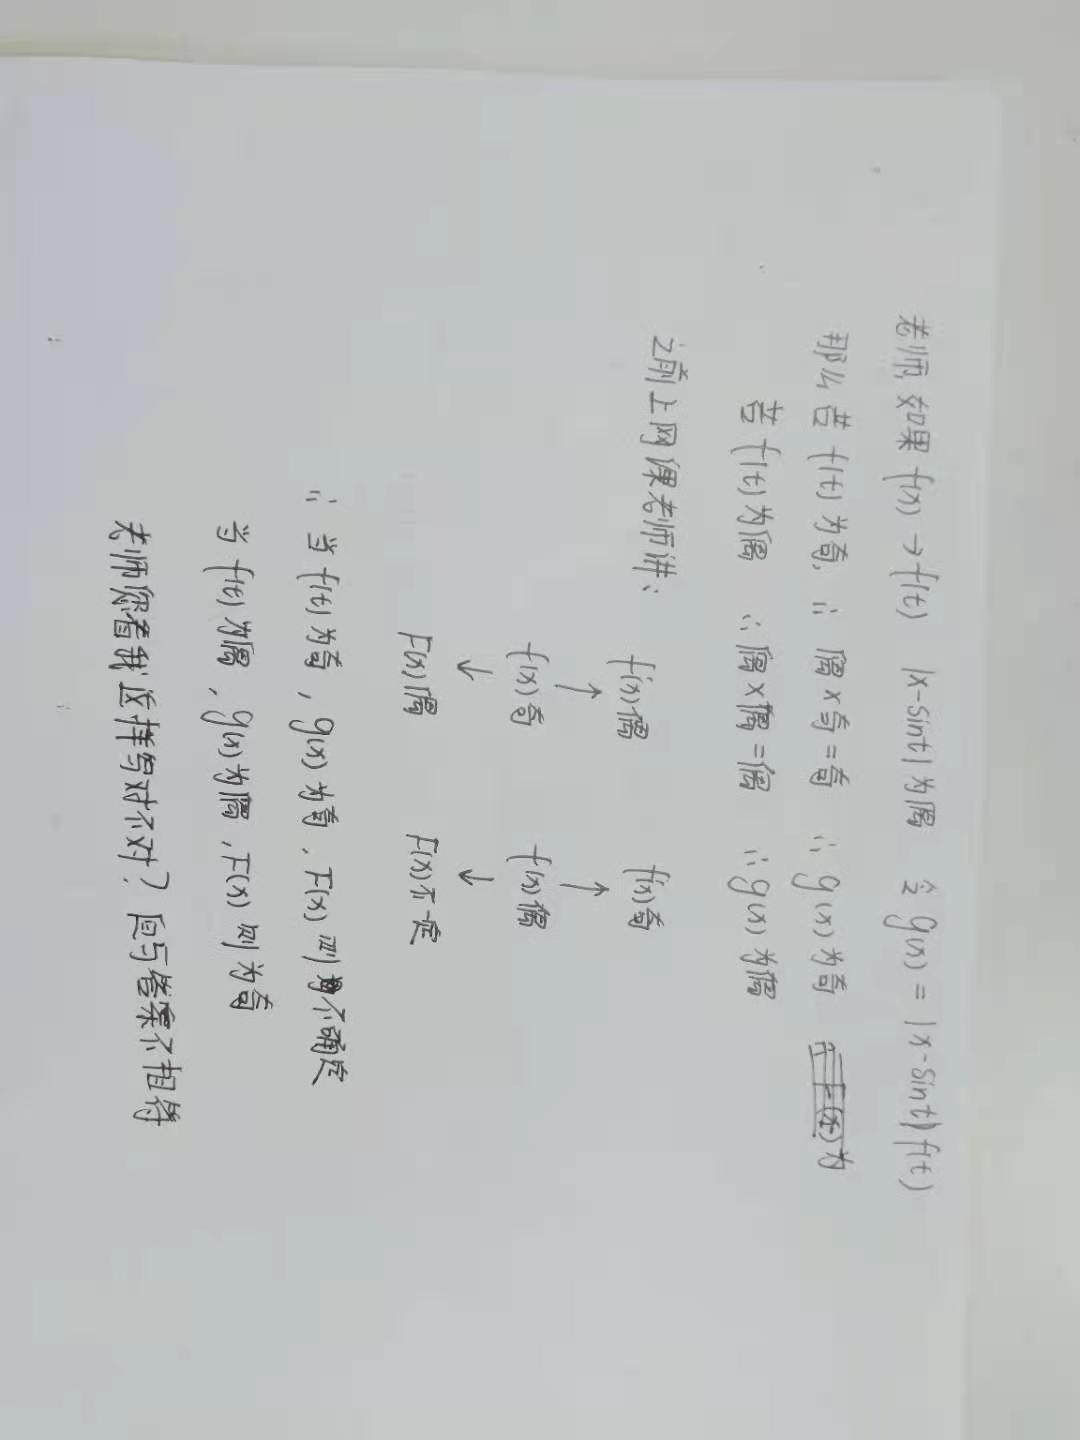 老师,如果 f(x) → f(t) |x-sint|为偶 令 g(x) = |x-sint|f(t)
那么若 f(t)为奇, ∴ 偶×奇=奇 ∴ g(x)为奇
若 f(t)为偶 ∴ 偶×偶=偶 ∴ g(x)为偶
之前上网课老师讲:
f'(x)偶 f'(x)奇
↑ ↑
f(x)奇 f(x)偶
↓ ↓
F(x)偶 F(x)不定
∴ 当 f(t)为奇, g(x)为奇, F(x)则不确定
当 f(t)为偶, g(x)为偶, F(x)则为奇
老师您看我这样写对不对? 且与答案不相符